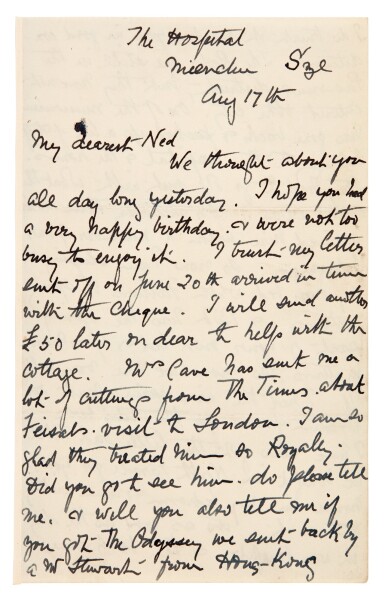 The Hospital
Mienchu Sze
Aug 17th
My dearest Ned
We thought about you
all day long yesterday. I hope you had
a very happy birthday. & were not too
busy to enjoy it. I trust my letter
sent off on June 20th arrived in time
with the cheque. I will send another
£50 later on dear to help with the
cottage. Mrs Cave has sent me a
lot of cuttings from The Times. about
Feisals visit to London. I am so
glad they treated him so Royally.
Did you go to see him. do please tell
me. & will you also tell me if
you got the Odyssey we sent back by
a Mr Stewart from Hong-Kong